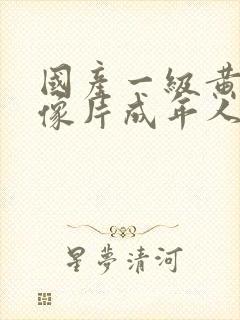 國產一級黃
像片成年人
星夢清河